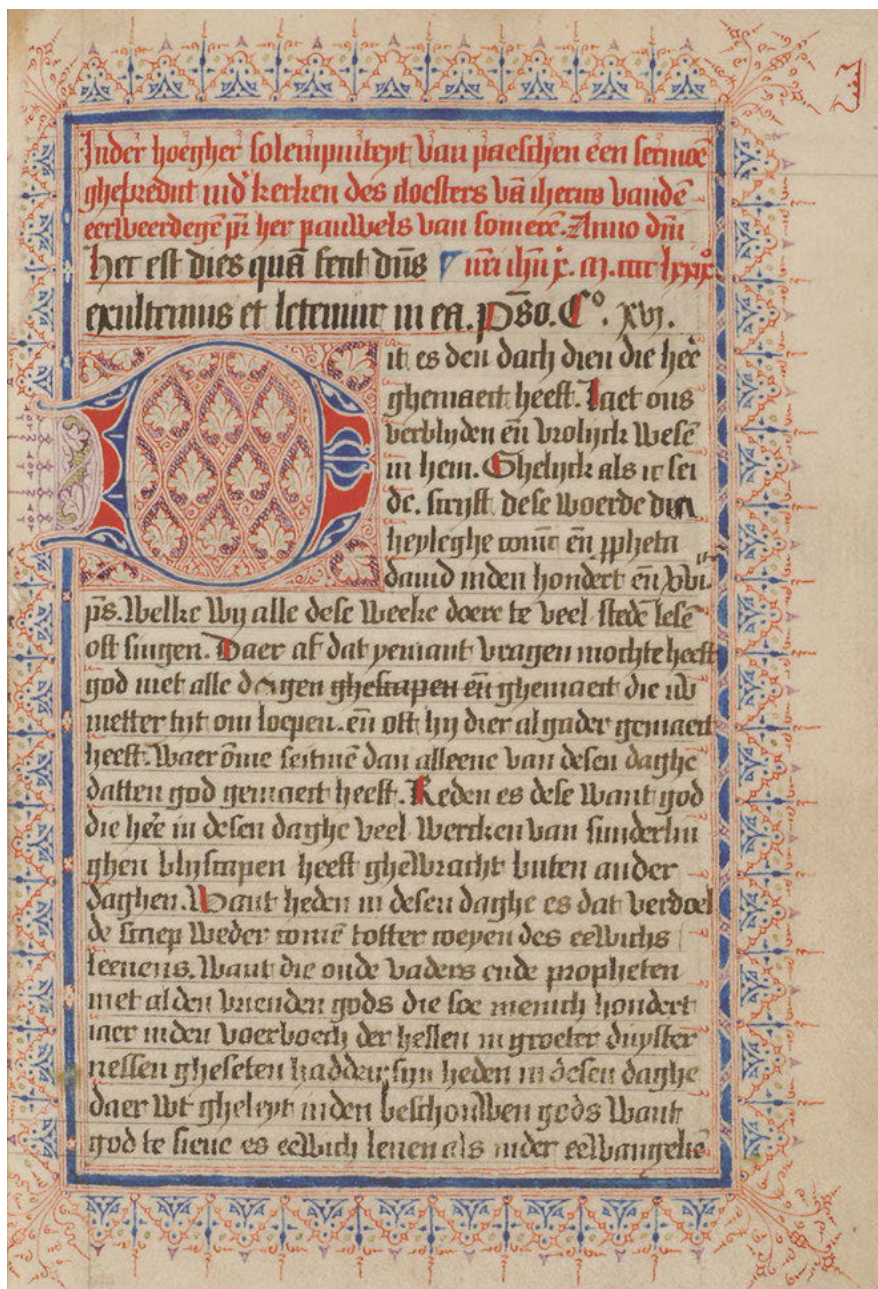 Inder hoegher solempniteyt van paeschen een sermoē
ghepredict ind' kerken des cloesters vā iherus̄ vandē
eerweerdegē pr̄ her pauwels van somerē. Anno dn̄i
Hec est dies quā fecit dn̄s n̄ri ih̄u x̄. m. cccc lxxx.
exultemus et letemur in ea. ps̄o. Cº. xvj.
Dit es den dach dien die heē
ghemaect heeft. Laet ons
verblyden en̄ vrolyck wesē
in hem. Ghelyck als ic sei
de. scryft dese woerde die
heyleghe coninc en̄ ꝓpheta
dauid inden hondert en̄ xvi.
ps̄. Welke wy alle dese weeke doere te veel stedē lesē
oft singen. Daer af dat yemant vragen mochte heeft
god niet alle dagen ghescapen en̄ ghemaect die iv̄
metter tyt om loepen. en̄ oft hy dier algader gemaect
heeft. Waer ōme seitmē dan alleene van desen daghe
datten god gemaect heeft. Reden es dese want god
die heē in desen daghe veel wercken van sunderlin
ghen blyscapen heeft ghewracht buten ander
daghen. Want heden in desen daghe es dat verdoel
de scaep weder comē totter coeyen des eewichs
leeuens. Want die oude vaders ende propheten
met al den vrienden gods die soe menich hondert
iaer inden voerboech der hellen in groeter duyster
nessen gheseten hadden, syn heden in desen daghe
daer wt gheleyt inden beschouwen gods want
god te siene es eewich leuen als inder eewangeliē